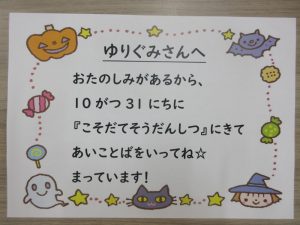 ゆりぐみさんへ
おたのしみがあるから、
10がつ31にちに
『こそだてそうだんしつ』にきて
あいことばをいってね☆
まっています!